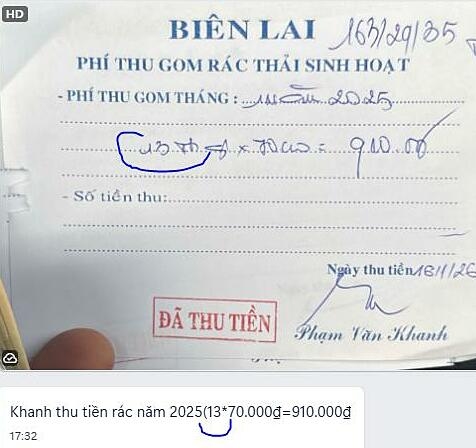 HD
BIÊN LAI 163/29/35
PHÍ THU GOM RÁC THẢI SINH HOẠT
- PHÍ THU GOM THÁNG : năm 2025
13 th x 70.000 = 910.00
- Số tiền thu:
Ngày thu tiền 18/1/26
ĐÃ THU TIỀN
Phạm Văn Khanh
Khanh thu tiền rác năm 2025(13*70.000₫=910.000₫
17:32